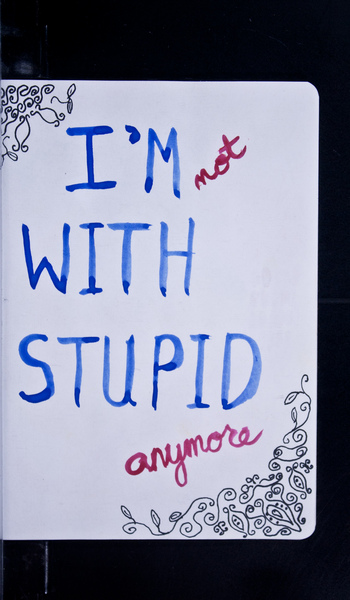 I'M not
WITH
STUPID
anymore